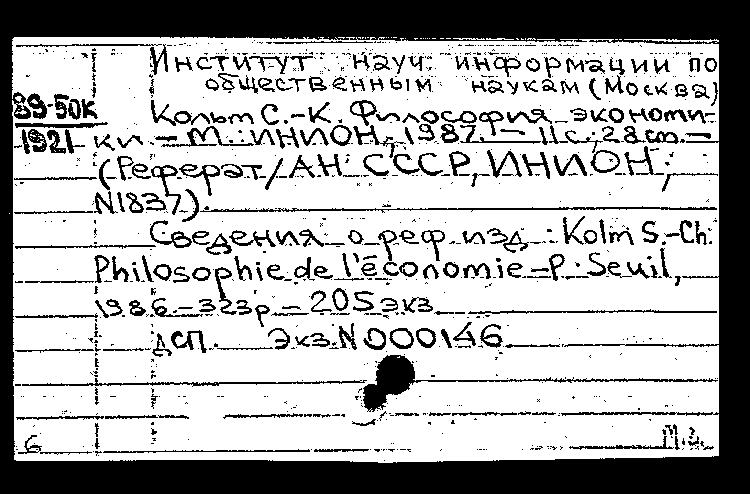 Институт науч. информации по
общественным наукам (Москва)
89-50к
1921
Кольт С.-К. Философия экономи-
ки. – М.: ИНИОН, 1987. – 11 с.; 28 cm. –
(Реферат/АН СССР, ИНИОН;
N1837).
Сведения о реф. изд.: Kolm S.-Ch.
Philosophie de l'économie – P.: Seuil,
1986 – 323p – 205 экз.
ДСП. Экз. N000146.
6